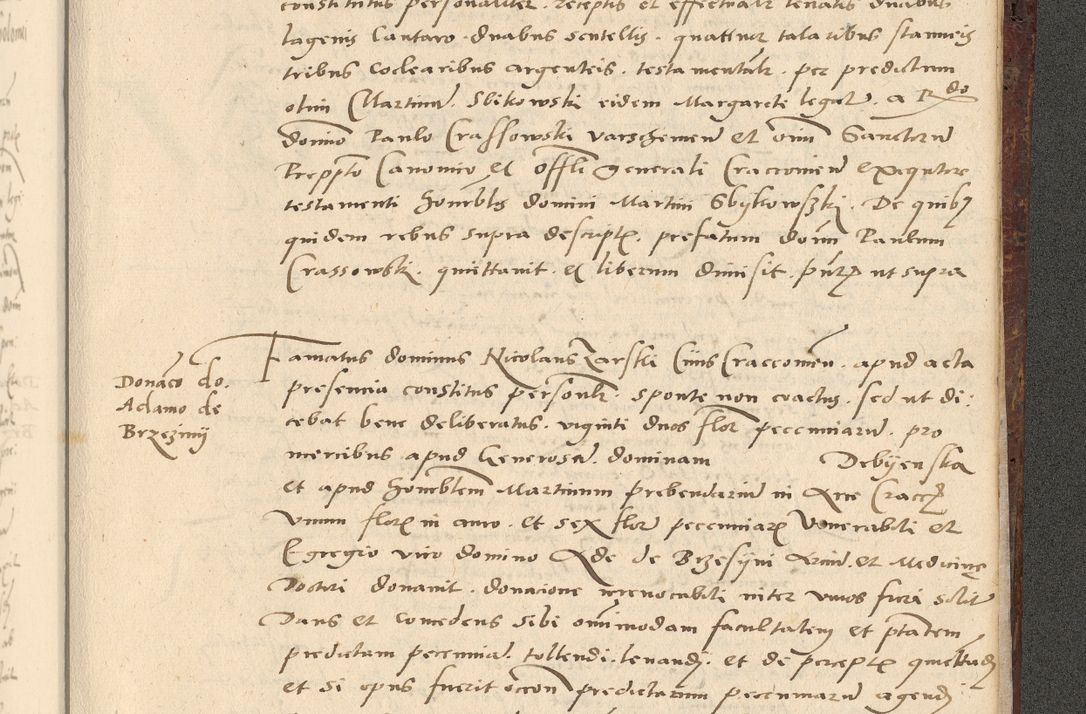 constitutus personaliter . receptis et effectualr levatis duabus
lagenis Cantaro . duabus scutellis . quattuor talaribus stanneis
tribus coclearibus argenteis . testamentalr . per predictum
olim Martinu . Sbikowski eidem Margarete legat . a Rdo
domino Paulo Crassowski varschemien et omi Sanctoru
Preppto Canonico et offli generali Cracovien exequtore
testamenti honorblis domini Martini Sbykowszki . De quib
quidem rebus supra descript . prefatum domi Paulum
Crassowski . quittavit . et liberum dimisit . pntz ut supra
Famatus dominus Nicolaus Zarski Civis Cracovien . apud acta
presencia constitus personlr . sponte non coactus . sed ut di
cebat bene deliberatus . viginti duos flor peccuniaru . pro
mercibus apud Generosa . dominam Debyenska
et apud honorblem Martinum prebendariu in Arce Cracc
Unum flor in auro . et sex flor peccuniar Venerabili et
Egregio viro domino Ade de Brzesyni Arciu . et Medicine
Doctori donavit . donacione irrevocabili inter vivos fieri solit
Dans et concedens sibi omnimodam facultatem et ptatem
predictam peccunia . tollendi . levandi . et de percept quittandi
et si opus fuerit occon predictarum peccuniaru agendi
Donaco do.
Adamo de
Brzezinij